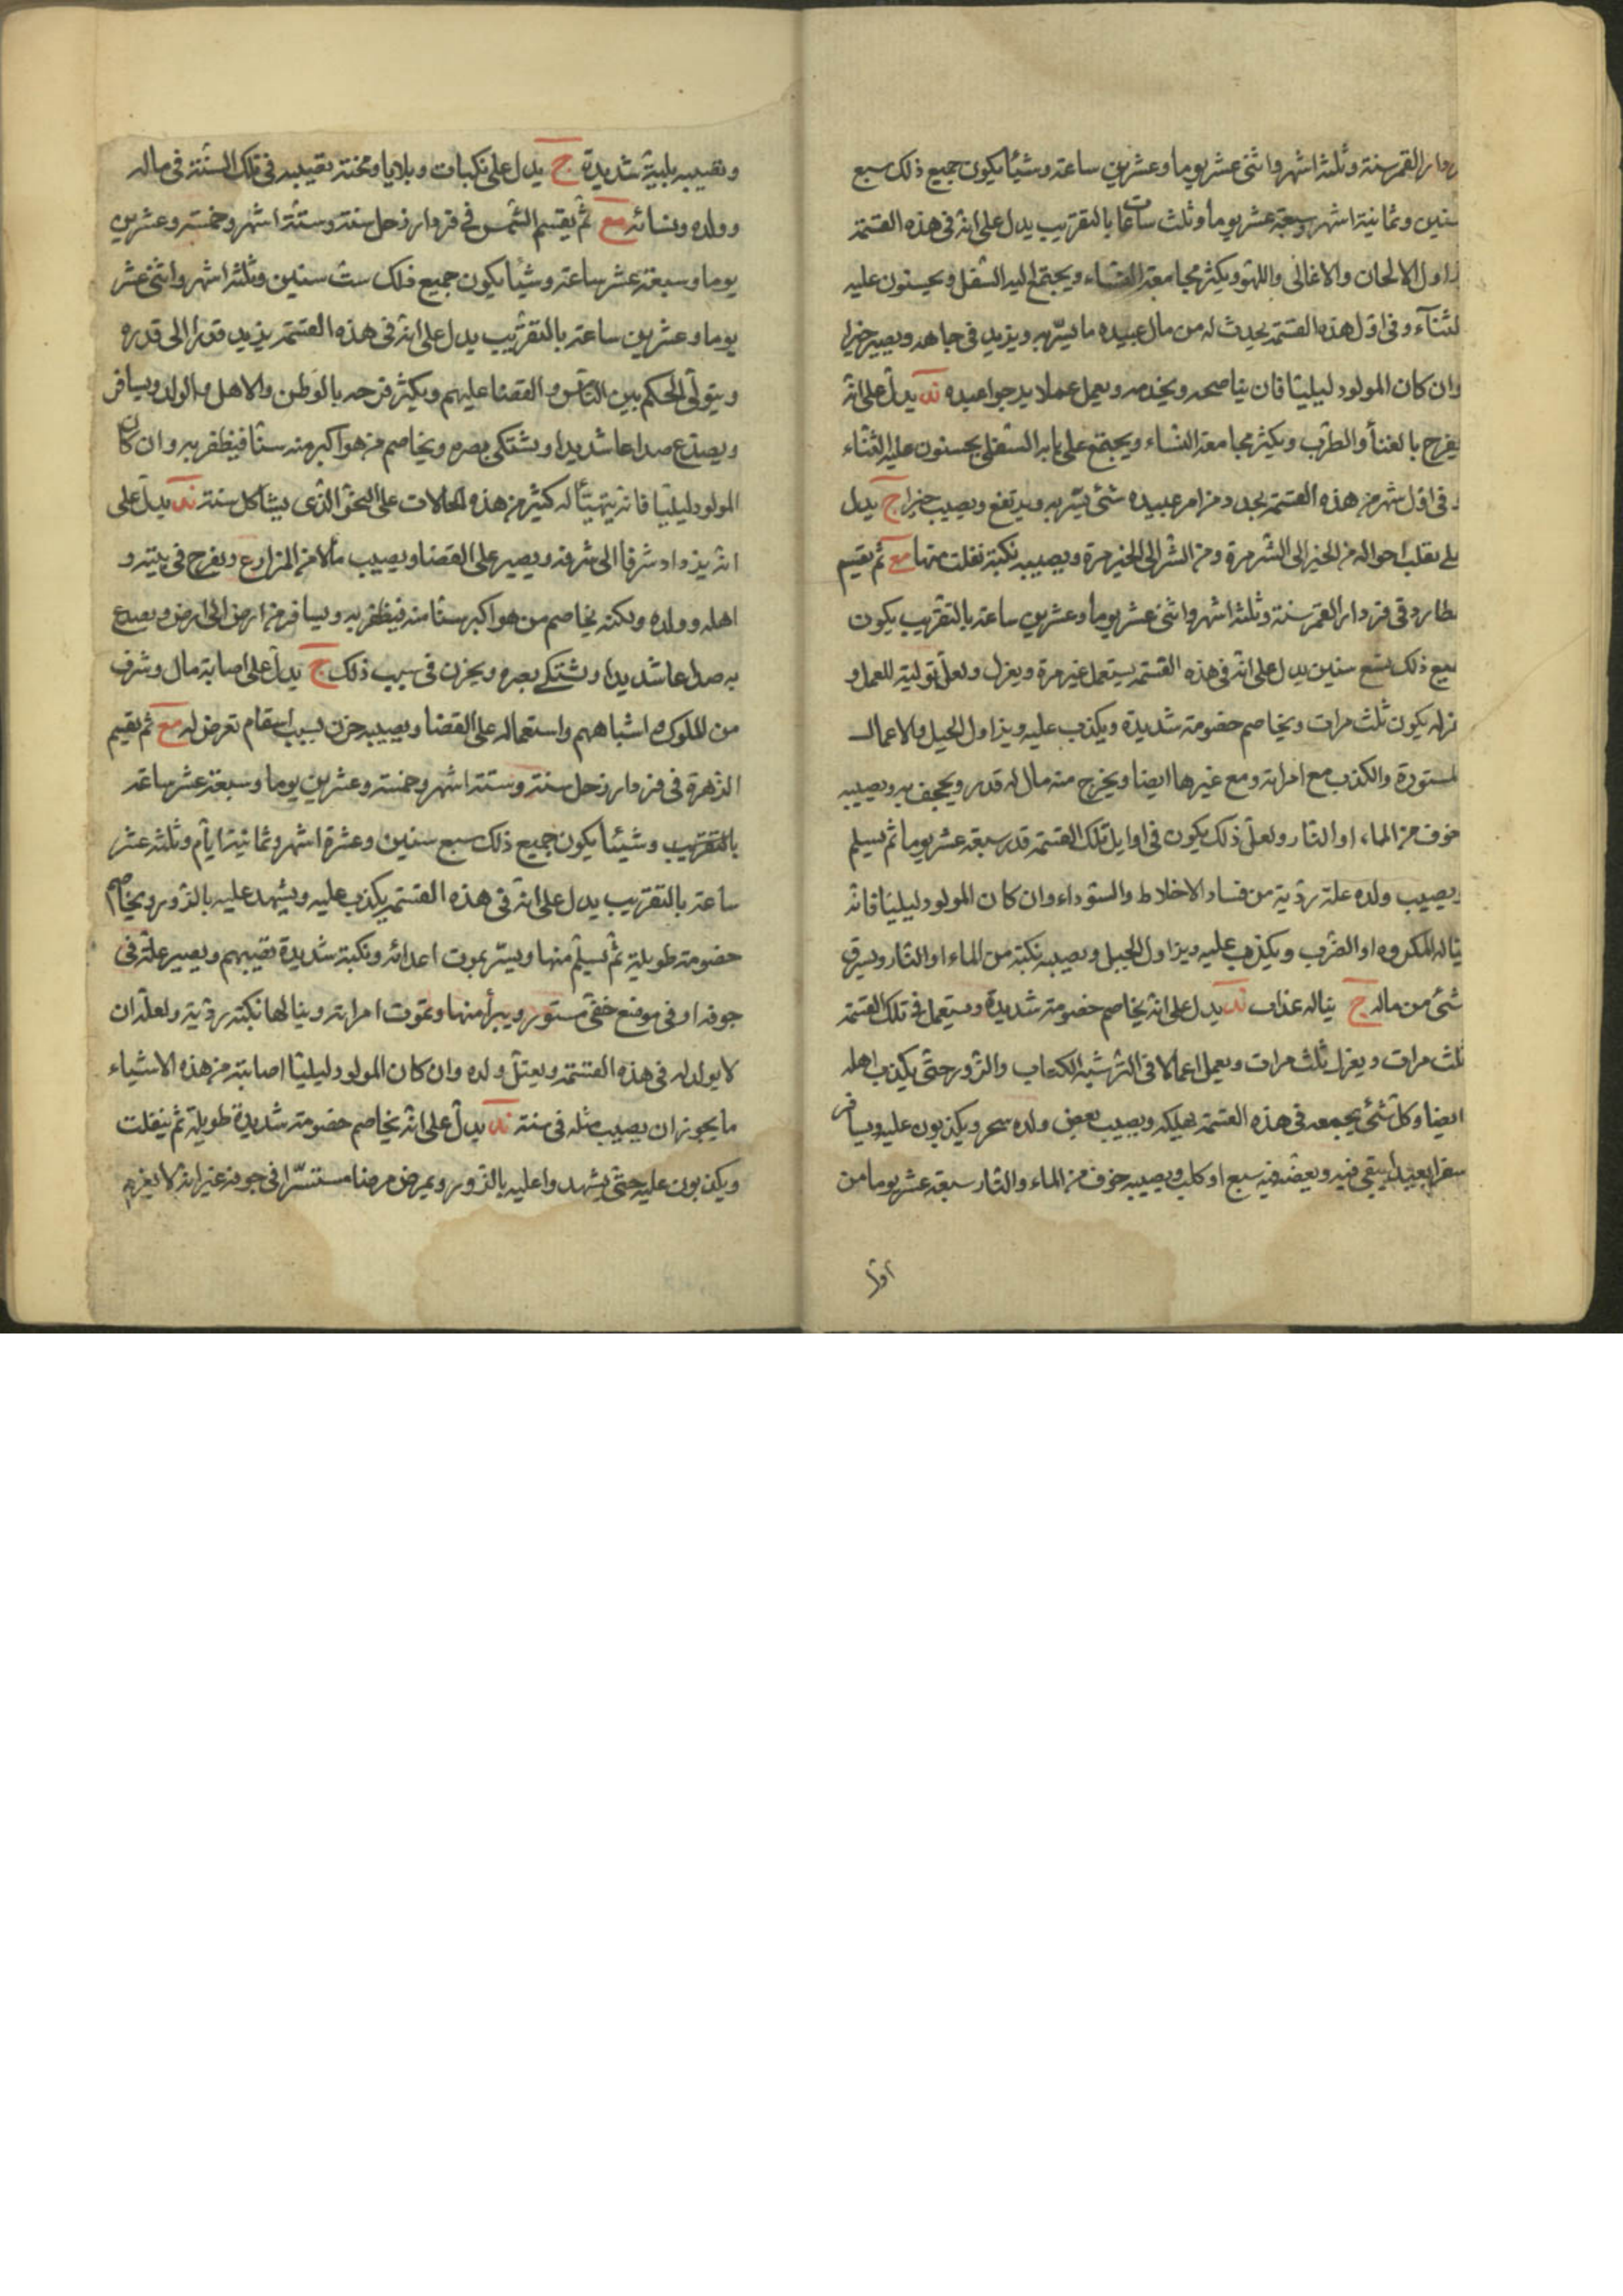 القمر سنة وثلثة اشهر واثنى عشر يوما وعشرين ساعة وشيئا يكون جميع ذلك سبع
سنين وثمانية اشهر وسبعة عشر يوما وثلث ساعات بالتقريب يدل على انه فى هذه القسمة
الالحان والاغانى واللهو ويكثر مجامعة النساء ويجتمع اليه السفل ويحسنون عليه
الثنآء وفى اول هذه القسمة يحدث له من مال عبيده ما يسّر به ويزيد فى جاهه ويصيب خيرا
وان كان المولود ليليّا فان يناصحه ويخدمه ويعمل عملا يرجوا عبيده ند يدلّ على انّه
يفرح بالغنآ والطرب ويكثر مجامعة النساء ويجتمع على بابه السفلى يحسنون عليه الثناء
وفى اول شهر من هذه القسمة من امر عبيده شئ يسّر به ويرتفع ويصيب خيرا ج يدل
على تقلب احواله من الخير الى الشر مرة ومن الشر الى الخير مرة ويصيبه نكبة منها مع ثم يقسم
عطارد فى فردار القمر سنة وثلثة اشهر واثنى عشر يوما وعشرين ساعة بالتقريب يكون
جميع ذلك تسع سنين يدل على انه فى هذه القسمة يستعمل غير مرة ويعزل ولعلّ توليته للعمل و
عزله يكون ثلث مرات ويخاصم خصومة شديدة ويكذب عليه ويزاول الحيل والاعمال
المستورة والكذب مع امراته ومع غيرها ايضا ويخرج منه مال له قدر ويجحف به ويصيبه
خوف من الماء او النار ولعلّ ذلك يكون فى اوايل تلك القسمة قدر سبعة عشر يوما ثم يسلم
ويصيب ولده علة رديّة من فساد الاخلاط والسّوداء وان كان المولود ليليّا فانّه
يناله المكروه او الضرب ويكذب عليه ويزاول الحيل ويصيبه نكبة من الماء او النار ويسرق
شئ من ماله ج يناله عذاب ند يدل على انه يخاصم خصومة شديدة ويستعمل فى تلك القسمة
ثلث مرات ويعزل ثلث مرات ويعمل اعمالا فى السّر شبه الكعاب والزّور حتّى يكذب اهله
ايضا وكلّ شئ يجمعه فى هذه القسمة يهلكه ويصيب بعض ولده سحر ويكذبون عليه ويسافر
سفرا بعيدا يبقى فيه ويعضّه فيه سبع او كلب ويصيبه خوف من الماء والنار سبعة عشر يوما من
ويصيبه بلية شديدة ج يدل على نكبات وبلايا ومحنة تصيبه فى تلك السّنة فى ماله
وولده ونسائه مع ثم يقسم الشمس فى فردار زحل سنة وستّة اشهر وخمسة وعشرين
يوما وسبعة عشر ساعة وشيئا يكون جميع ذلك ست سنين وثلثة اشهر واثنى عشر
يوما وعشرين ساعة بالتقريب يدل على انه فى هذه القسمة يزيد قدرا الى قدره
ويتولّى الحكم بين النّاس والقضا عليهم ويكثر فرحه بالوطن والاهل والولد ويسافر
ويصدّع صداعا شديدا ويشتكى بصره ويخاصم من هو اكبر منه سنّا فيظفر به وان كان
المولود ليليّا فانّه يتهيّأ له كثير من هذه الحالات على النحو الّذى يشاكل سنة ند يدلّ على
انه يزداد شرفا الى شرفه ويصير على القضا ويصيب مالا من المزارع ويفرح فى بيته و
اهله وولده ولكنه يخاصم من هو اكبر سنّا منه فيظفر به ويسافر من ارض الى ارض ويصدع
به صداعا شديدا ويشتكى بصره ويحزن فى سبب ذلك ج يدلّ على اصابة مال وشرف
من الملوك واشباههم واستعماله على القضا ويصيبه حزن بسبب اسقام تعرض له مع ثم يقسم
الزهرة فى فردار زحل سنة وستة اشهر وخمسة وعشرين يوما وسبعة عشر ساعة
بالتقريب وشيئا يكون جميع ذلك سبع سنين وعشرة اشهر وثمانية ايّام وثلثة عشر
ساعة بالتقريب يدل على انه فى هذه القسمة يكذب عليه ويشهد عليه بالزّور ويخاصم
خصومة طويلة ثم يسلم منها ويسّر بموت اعدائه ونكبة شديدة تصيبهم ويصير علّة فى
جوفه او فى موضع خفىّ مستور ويبرأ منها وتموت امراته وينالها نكبة رديّة ولعلّه ان
لا يولد له فى هذه القسمة ويعتلّ ولده وان كان المولود ليليّا اصابته من هذه الاشياء
ما يجوز ان يصيب مثله فى سنة ند يدلّ على انّه يخاصم خصومة شديدة طويلة ثم ينفلت
ويكذبون عليه حتّى يشهدوا عليه بالزّور ويمرض مرضا مستسرّا فى جوفه غير انه لا